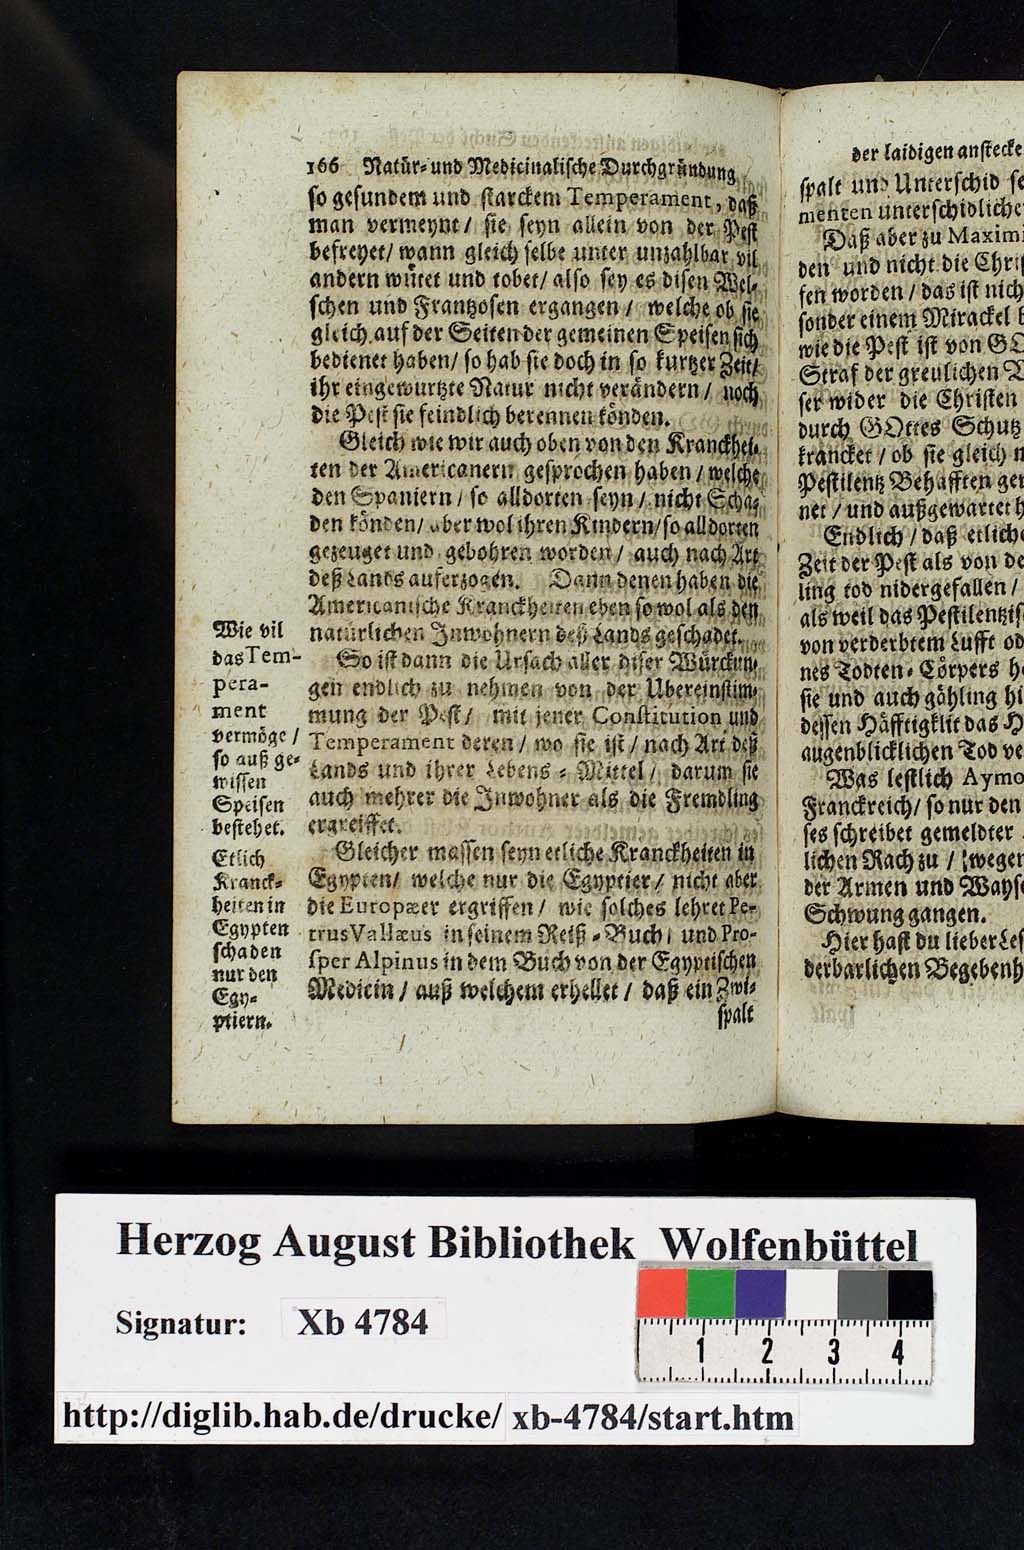 166 Natür- und Medicinalische Durchgründung
so gesundem und starckem Temperament, daß
man vermeynt / sie seyn allein von der Pest
befreyet / wann gleich selbe unter unzahlbar vil
andern wütet und tobet / also sey es disen Wel-
schen und Frantzosen ergangen / welche ob sie
gleich auf der Seiten der gemeinen Speisen sich
bedienet haben / so hab sie doch in so kurtzer Zeit /
ihr eingewurtzte Natur nicht verändern / noch
die Pest sie feindlich berennen könden.
Gleich wie wir auch oben von den Kranckhei-
ten der Americanern gesprochen haben / welche
den Spaniern / so alldorten seyn / nicht Scha-
den könden / aber wol ihren Kindern / so alldorten
gezeuget und gebohren worden / auch nach Art
deß Lands auferzogen. Dann denen haben die
Americanische Kranckheiten eben so wol als den
natürlichen Inwohnern deß Lands geschadet.
So ist dann die Ursach aller diser Würckun-
gen endlich zu nehmen von der Ubereinstim-
mung der Pest / mit jener Constitution und
Temperament deren / wo sie ist / nach Art deß
Lands und ihrer Lebens-Mittel / darum sie
auch mehrer die Inwohner als die Fremdling
ergreiffet.
Gleicher massen seyn etliche Kranckheiten in
Egypten / welche nur die Egyptier / nicht aber
die Europæer ergriffen / wie solches lehret Pe-
trus Vallæus in seinem Reiß-Buch / und Pro-
sper Alpinus in dem Buch von der Egyptischen
Medicin / auß welchem erhellet / daß ein Zwi-
spalt
Wie vil
das Tem-
pera-
ment
vermöge /
so auß ge-
wissen
Speisen
bestehet.
Etlich
Kranck-
heiten in
Egypten
schaden
nur den
Egy-
ptiern.
der laidigen anstecke
spalt und Unterschid se
menten unterschidliche
Daß aber zu Maximi
den und nicht die Chri
fen worden / das ist nich
sonder einem Mirackel
wie die Pest ist von GO
Straf der greulichen
ser wider die Christen
durch GOttes Schutz
krancket / ob sie gleich
Pestilentz Behafften ge
net / und außgewartet
Endlich / daß etliche
Zeit der Pest als von de
ling tod nidergefallen /
als weil das Pestilentzis
von verderbtem Lufft od
nes Todten-Cörpers
sie und auch gähling hi
dessen Häfftigklit das
augenblicklichen Tod ve
Was lestlich Aymo
Franckreich / so nur den
ses schreibet gemeldter
lichen Rach zu / wegen
der Armen und Wayse
Schwung gangen.
Hier hast du lieber Les
derbarlichen Begebenh
Herzog August Bibliothek Wolfenbüttel
Signatur: Xb 4784
1 2 3 4
http://diglib.hab.de/drucke/ xb-4784/start.htm